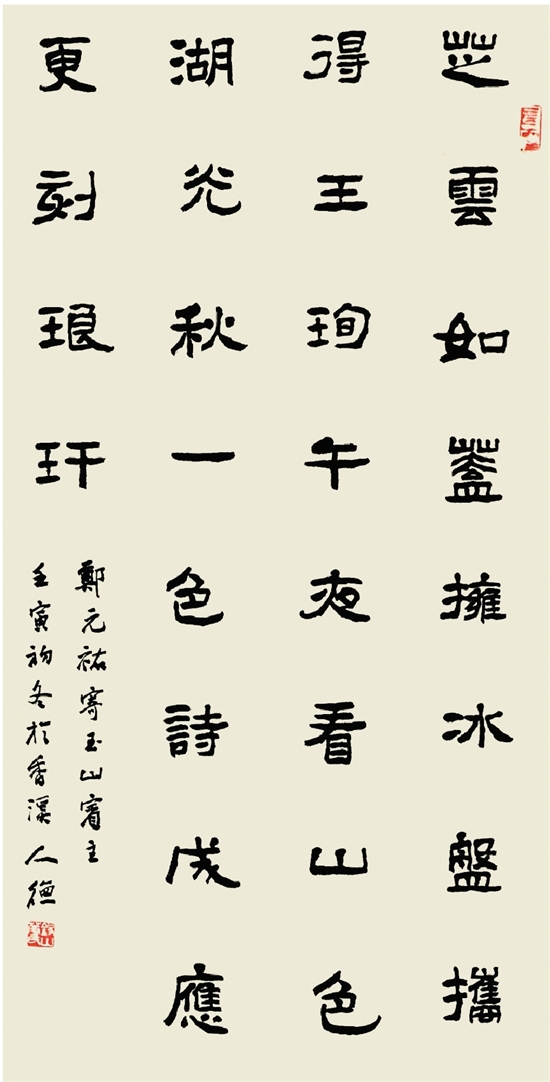 芝雲如蓋擁冰盤攜
得王珣午夜看山色
湖光秋一色詩成應
更刻琅玕
鄭元祐寄玉山賓主
壬寅初冬於香溪人德